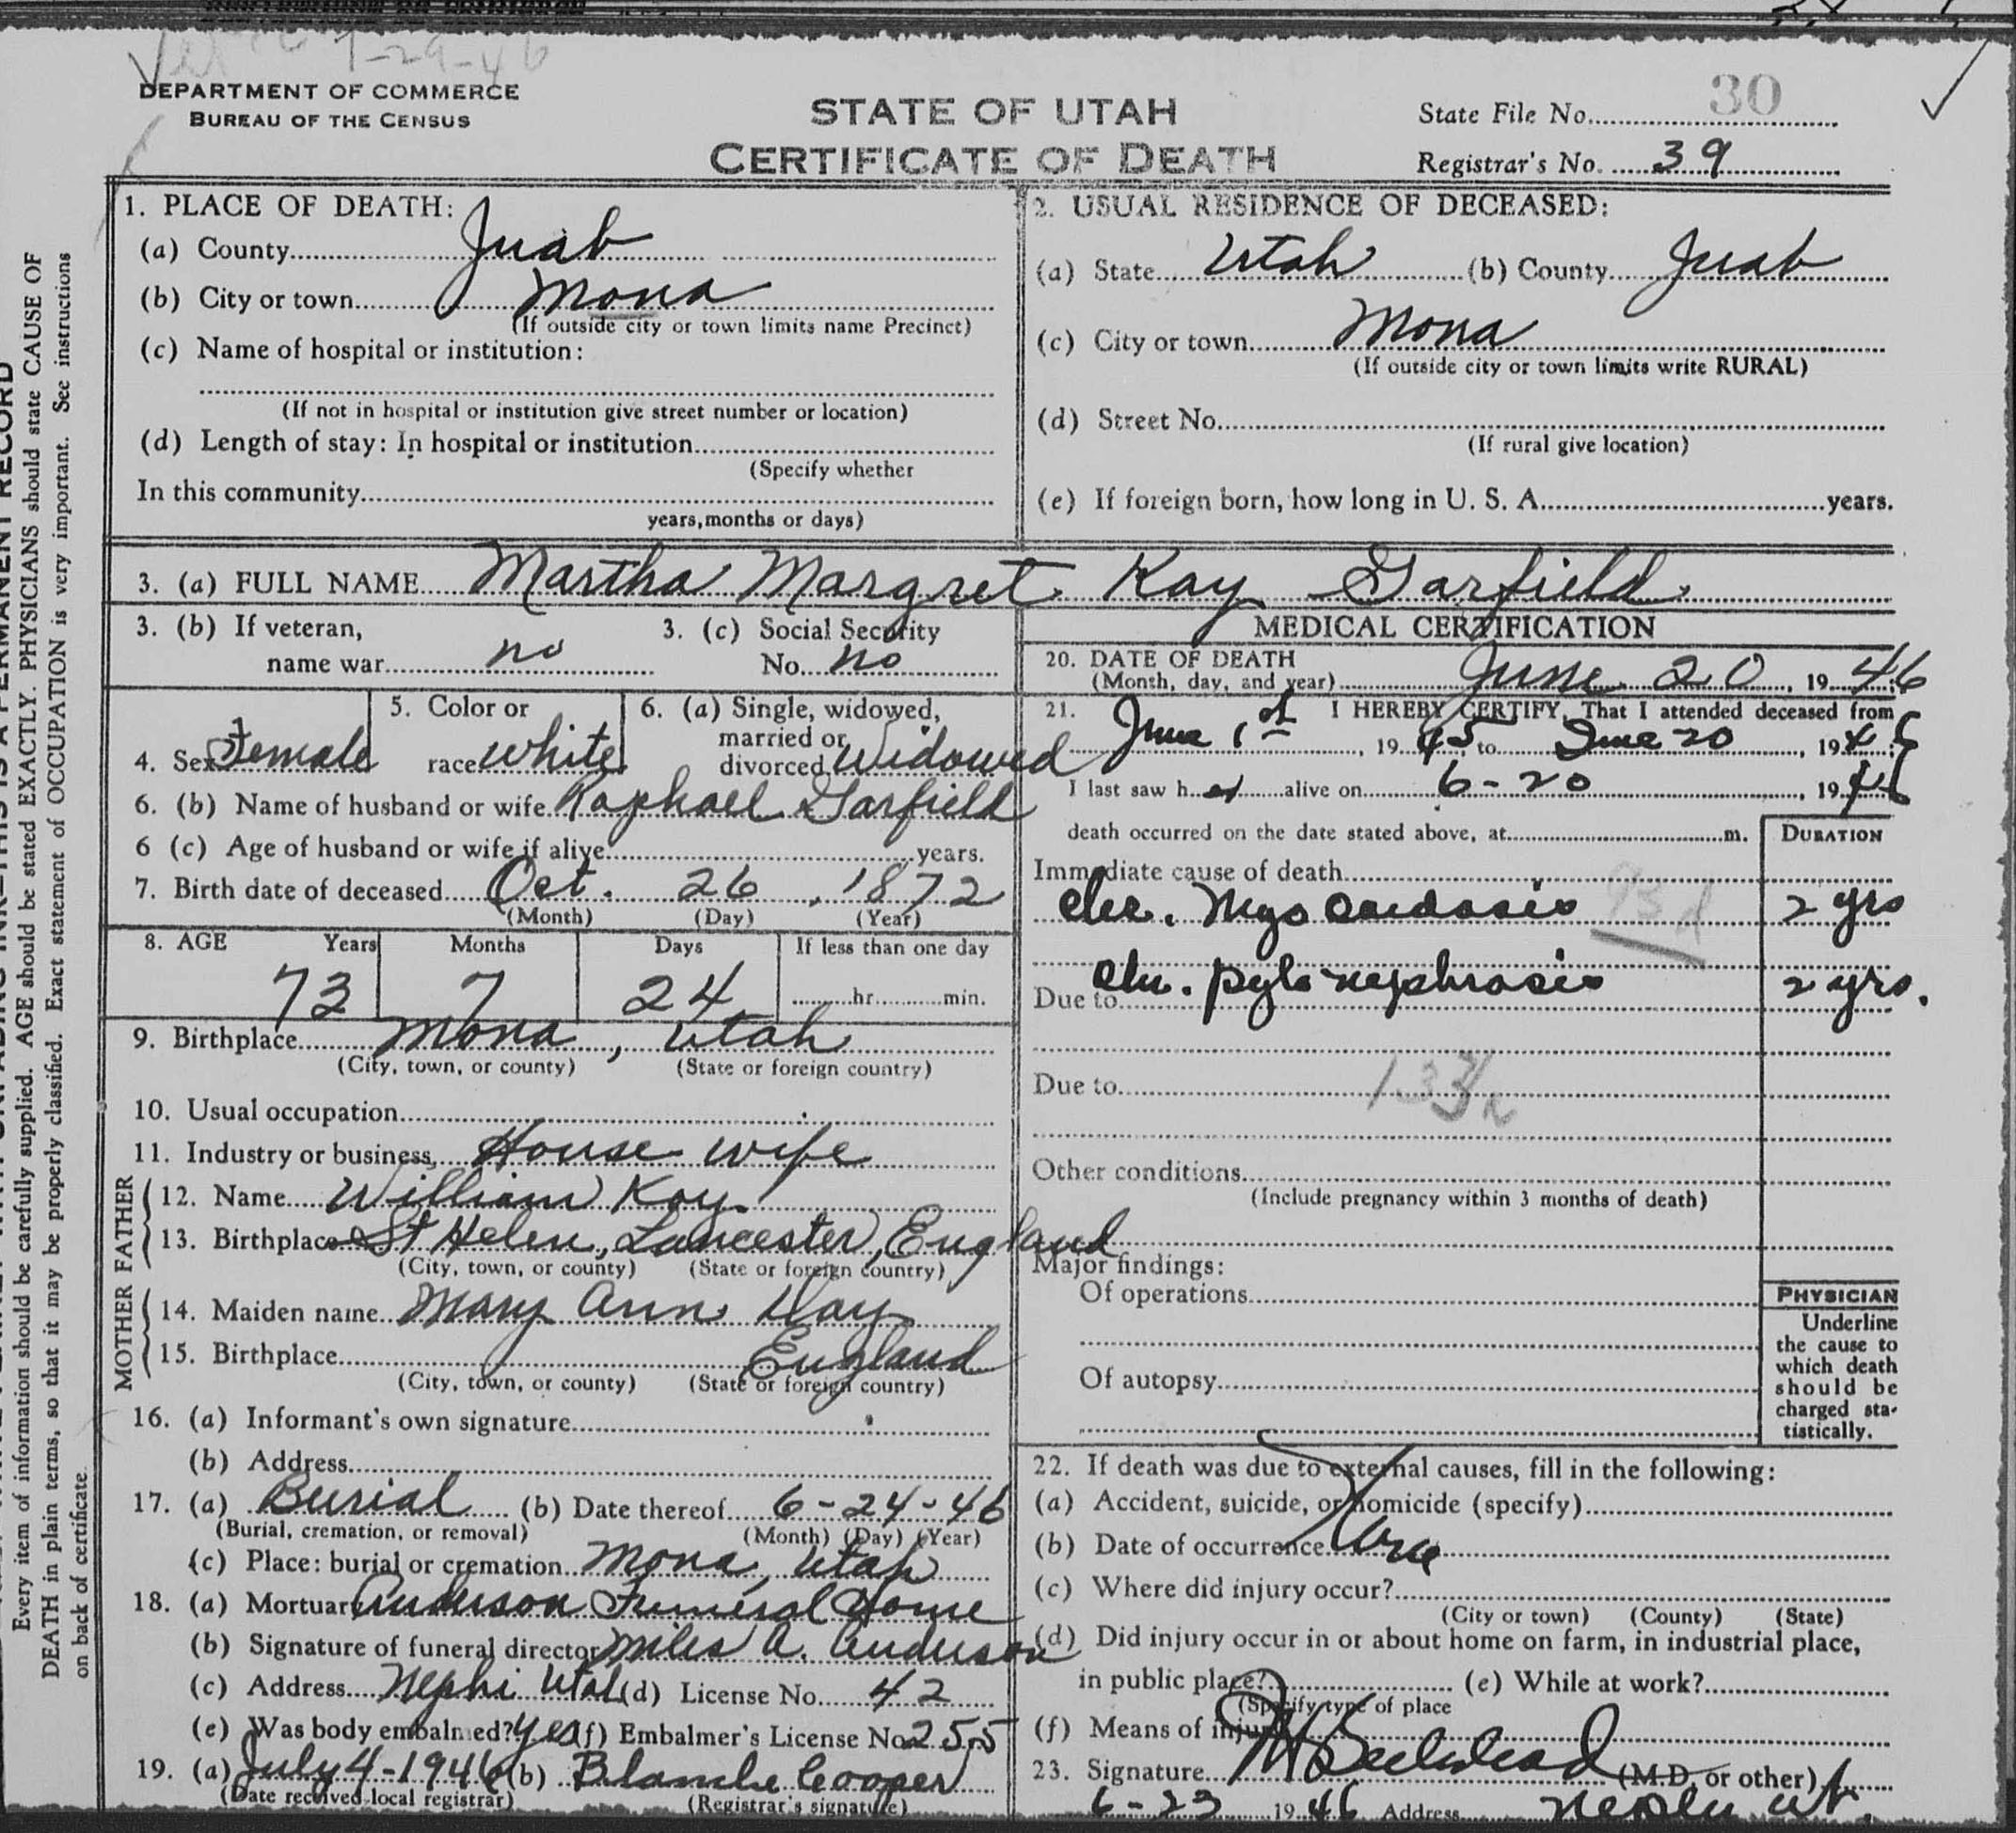 7-29-46
DEPARTMENT OF COMMERCE
BUREAU OF THE CENSUS
STATE OF UTAH
CERTIFICATE OF DEATH
State File No. 30
Registrar's No. 39
1. PLACE OF DEATH:
(a) County Juab
(b) City or town Mona
(If outside city or town limits name Precinct)
(c) Name of hospital or institution:
(If not in hospital or institution give street number or location)
(d) Length of stay: In hospital or institution
(Specify whether
In this community
years, months or days)
2. USUAL RESIDENCE OF DECEASED:
(a) State Utah (b) County Juab
(c) City or town Mona
(If outside city or town limits write RURAL)
(d) Street No.
(If rural give location)
(e) If foreign born, how long in U. S. A. years.
3. (a) FULL NAME Martha Margret Kay Garfield
3. (b) If veteran, name war no
3. (c) Social Security No. no
4. Sex Female
5. Color or race White
6. (a) Single, widowed, married or divorced Widowed
6. (b) Name of husband or wife Raphael Garfield
6 (c) Age of husband or wife if alive years.
7. Birth date of deceased Oct. 26, 1872
(Month) (Day) (Year)
8. AGE Years Months Days If less than one day
73 7 24 hr. min.
9. Birthplace Mona, Utah
(City, town, or county) (State or foreign country)
10. Usual occupation
11. Industry or business House wife
FATHER
12. Name William Kay
13. Birthplace St Helen, Lancester, England
(City, town, or county) (State or foreign country)
MOTHER
14. Maiden name Mary Ann Hay
15. Birthplace England
(City, town, or county) (State or foreign country)
16. (a) Informant's own signature
(b) Address
17. (a) Burial (b) Date thereof 6-24-46
(Burial, cremation, or removal) (Month) (Day) (Year)
(c) Place: burial or cremation Mona, Utah
18. (a) Mortuary Anderson Funeral Home
(b) Signature of funeral director Miles A. Anderson
(c) Address Nephi Utah (d) License No. 42
(e) Was body embalmed? Yes (f) Embalmer's License No. 255
19. (a) July 4-1946 (b) Blanche Cooper
(Date received local registrar) (Registrar's signature)
MEDICAL CERTIFICATION
20. DATE OF DEATH
(Month, day, and year) June 20, 1946
21. I HEREBY CERTIFY, That I attended deceased from
June 1st, 1945 to June 20, 1946
I last saw her alive on 6-20, 1946
death occurred on the date stated above, at m. DURATION
Immediate cause of death
Chr. Myocardosis 2 yrs
Due to Chr. pylo nephrosis 2 yrs.
Due to 133
Other conditions
(Include pregnancy within 3 months of death)
Major findings:
Of operations
Of autopsy
PHYSICIAN
Underline
the cause to
which death
should be
charged sta-
tistically.
22. If death was due to external causes, fill in the following:
(a) Accident, suicide, or homicide (specify)
(b) Date of occurrence
(c) Where did injury occur?
(City or town) (County) (State)
(d) Did injury occur in or about home on farm, in industrial place,
in public place? (e) While at work?
(Specify type of place
(f) Means of injury
23. Signature (M.D. or other)
6-23 1946 Address Nephi Ut.
THIS IS A PERMANENT RECORD
Every item of information should be carefully supplied. AGE should be stated EXACTLY. PHYSICIANS should state CAUSE OF
DEATH in plain terms, so that it may be properly classified. Exact statement of OCCUPATION is very important. See instructions
on back of certificate.